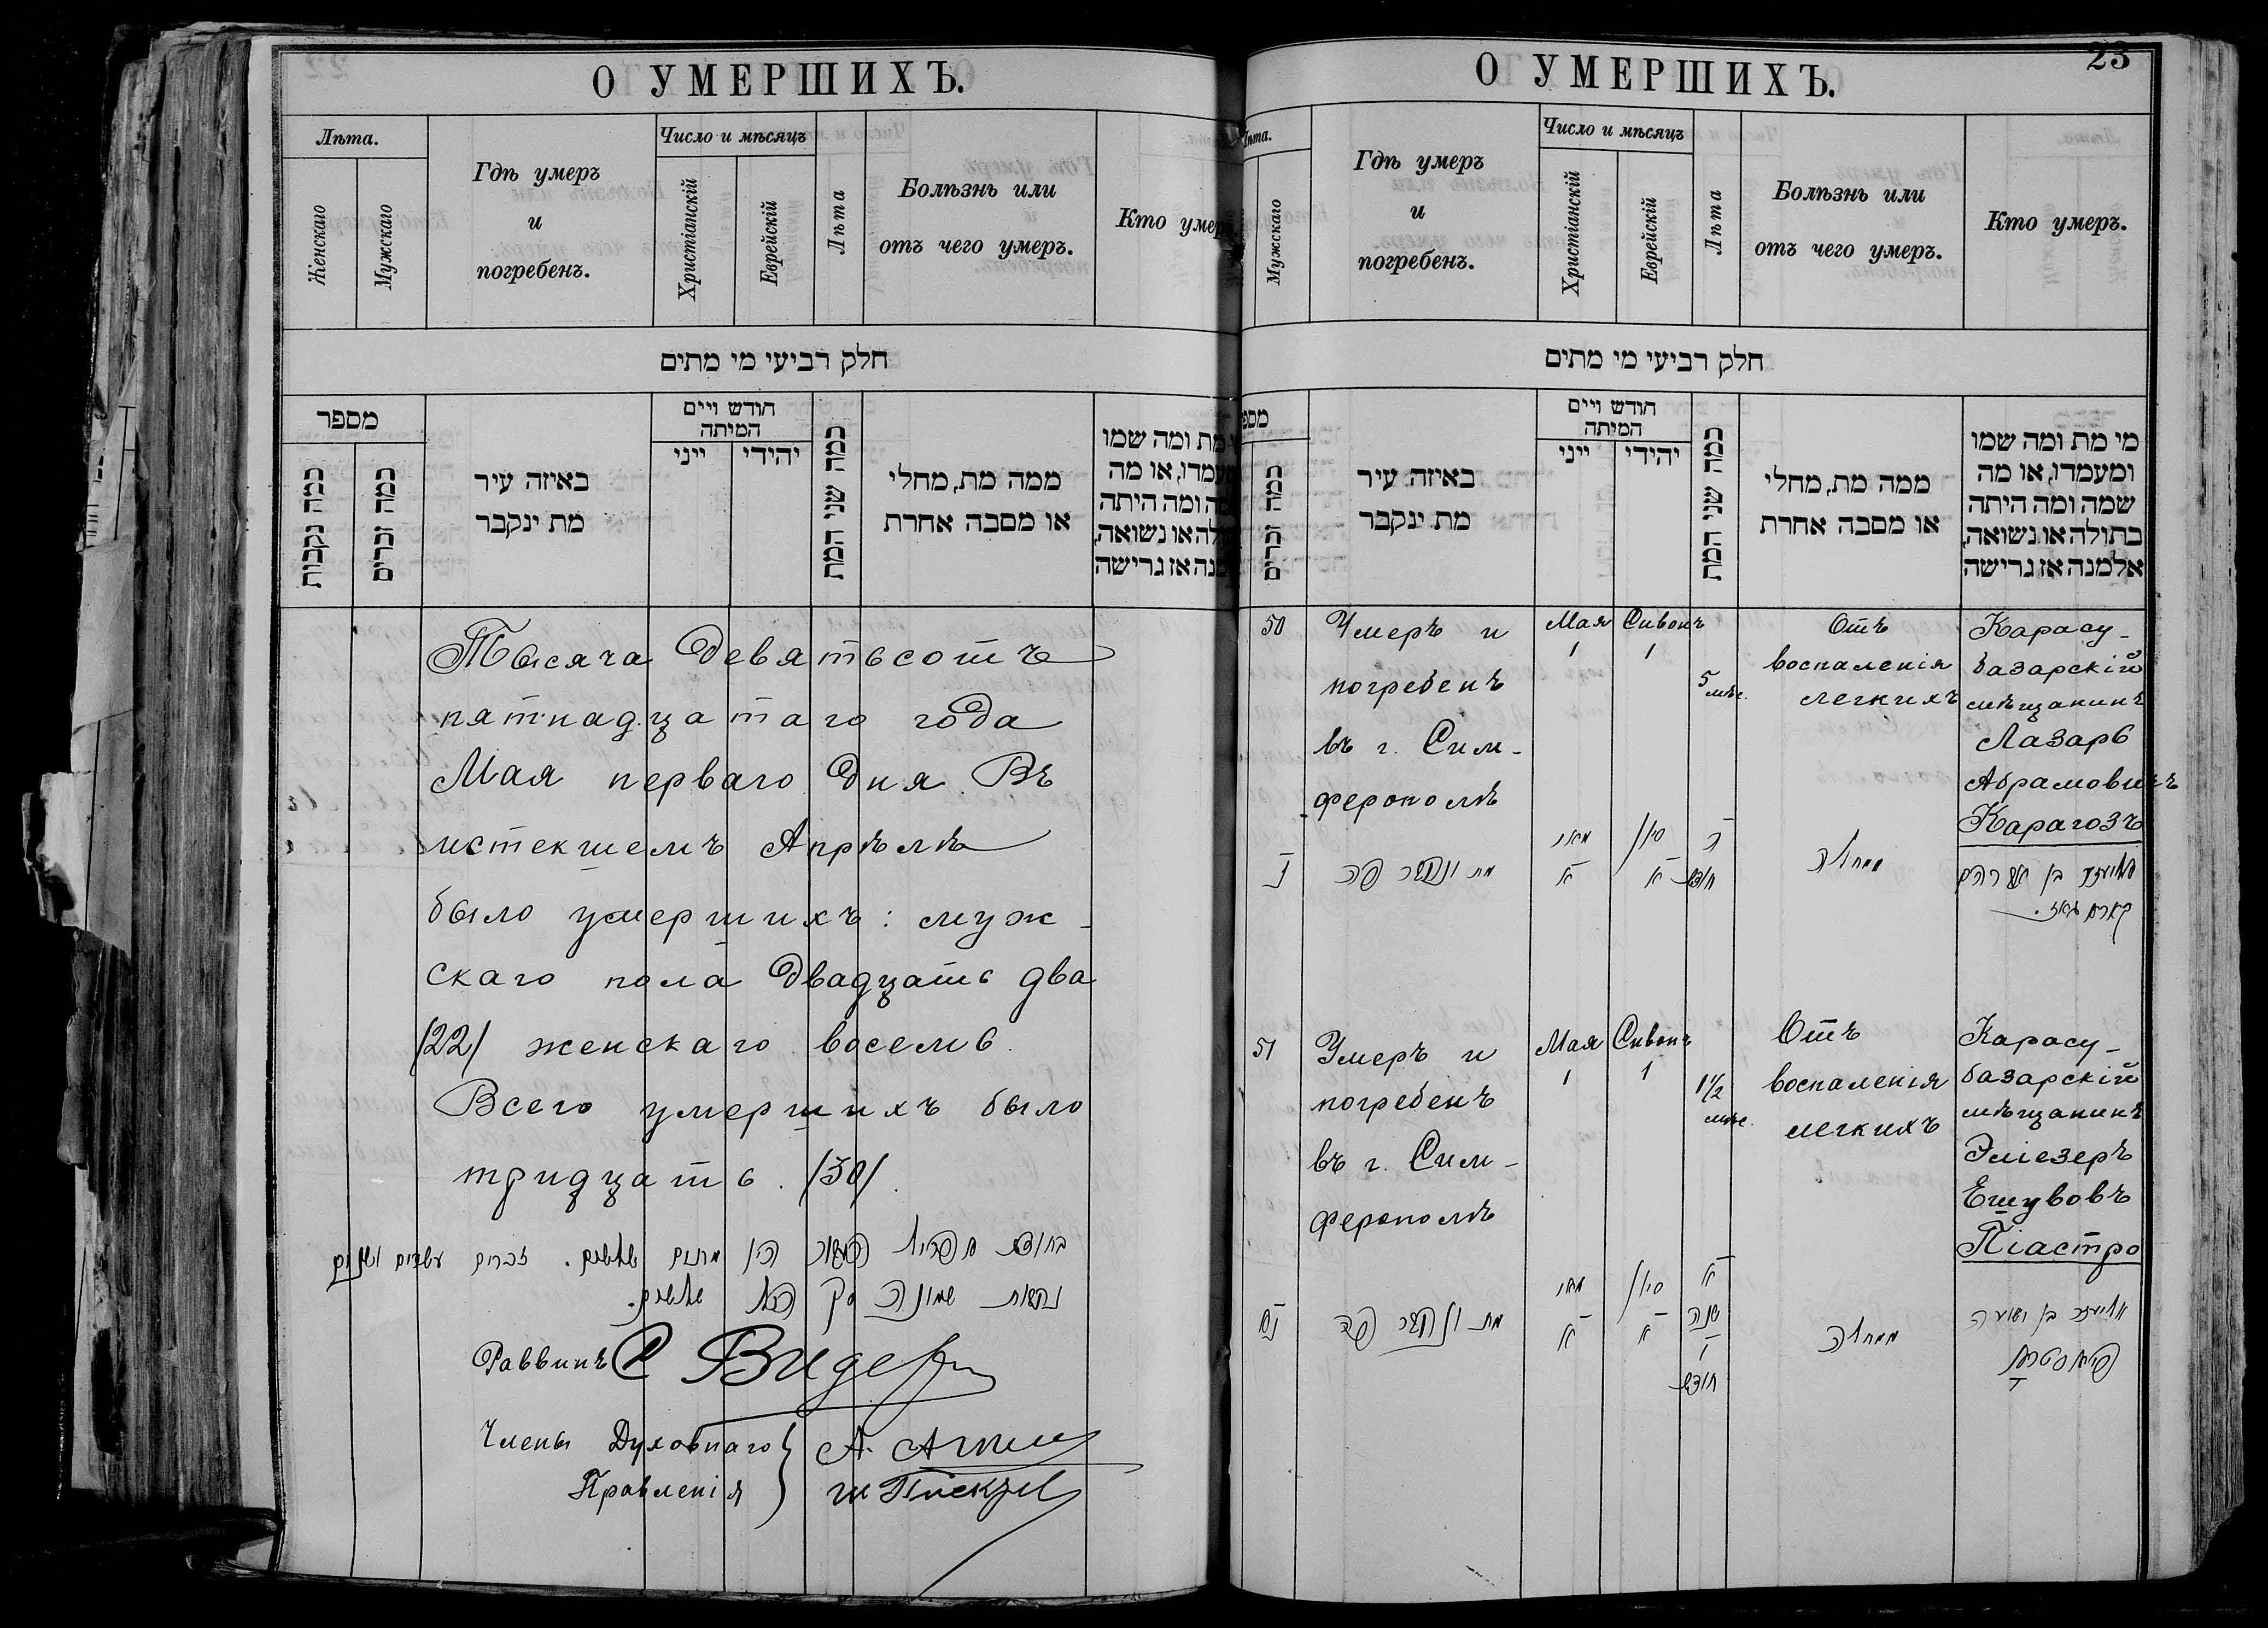 О УМЕРШИХЪ.
Лѣта.
Женскаго
Мужскаго
Гдѣ умеръ
и
погребенъ.
Число и мѣсяцъ
Христіанскій
Еврейскій
Лѣта
Болѣзнь или
отъ чего умеръ.
Кто умеръ
חלק רביעי מי מתים
מספר
כמה נקבות
כמה זכרים
באיזה עיר
מת ינקבר
חודש ויים
המיתה
ייני
יהידי
כמה שני המת
ממה מת, מחלי
או מסבה אחרת
מת ומה שמו
ומה היתה
או נשואה,
אז גרישה
Тысяча девятьсотъ
пятнадцатаго года
Мая перваго дня. Въ
истекшемъ Апрѣлѣ
было умершихъ: муж-
скаго пола двадцать два
/22/ женскаго восемь.
Всего умершихъ было
тридцать. /30/.
נקבות שמונה סך הכל
Раввинъ
Члены Духовнаго
Правленія
О УМЕРШИХЪ.
23
Лѣта.
Мужскаго
Гдѣ умеръ
и
погребенъ.
Число и мѣсяцъ
Христіанскій
Еврейскій
Лѣта
Болѣзнь или
отъ чего умеръ.
Кто умеръ.
חלק רביעי מי מתים
כמה זכרים
באיזה עיר
מת ינקבר
חודש ויים
המיתה
ייני
יהידי
כמה שני המת
ממה מת, מחלי
או מסבה אחרת
מי מת ומה שמו
ומעמדו, או מה
שמה ומה היתה
בתולה או נשואה,
אלמנה אז גרישה
50
Умеръ и
погребенъ
въ г. Сим-
ферополѣ
Мая
1
Сивонъ
1
5
мѣс.
Отъ
воспаленія
легкихъ
Карасу-
базарскій
мѣщанинъ
Лазарь
Абрамовичъ
Карагозъ
נ
מת ונקבר פה
מאי
א
סיון
א
ה
חודש
51
Умеръ и
погребенъ
въ г. Сим-
ферополѣ
Мая
1
Сивонъ
1
1 1/2
мѣс.
Отъ
воспаленія
легкихъ
Карасу-
базарскій
мѣщанинъ
Эліезеръ
Ешувовъ
Піастро
נא
מת ונקבר פה
מאי
א
סיון
א
א
שנה
ו
חודש
אליעזר בן ישועה